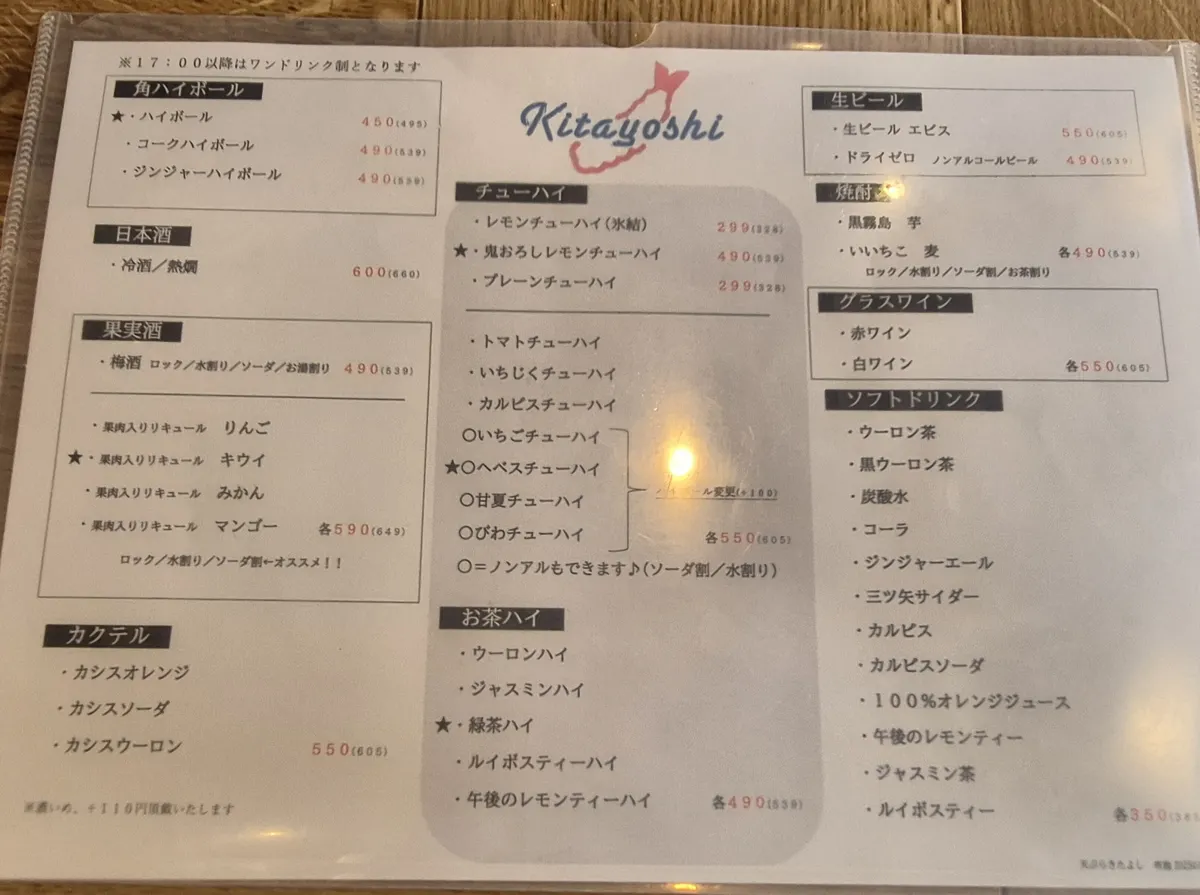 ※１７：００以降はワンドリンク制となります
角ハイボール
★・ハイボール 450(495)
・コークハイボール 490(539)
・ジンジャーハイボール 490(539)
日本酒
・冷酒／熱燗 600(660)
果実酒
・梅酒 ロック／水割り／ソーダ／お湯割り 490(539)
・果肉入りリキュール りんご
★・果肉入りリキュール キウイ
・果肉入りリキュール みかん
・果肉入りリキュール マンゴー 各590(649)
ロック／水割り／ソーダ割←オススメ！！
カクテル
・カシスオレンジ
・カシスソーダ
・カシスウーロン 550(605)
※濃いめ、＋１１０円頂戴いたします
Kitayoshi
チューハイ
・レモンチューハイ(氷結) 299(328)
★・鬼おろしレモンチューハイ 490(539)
・プレーンチューハイ 299(328)
・トマトチューハイ
・いちじくチューハイ
・カルピスチューハイ
〇いちごチューハイ
★〇ヘベスチューハイ
〇甘夏チューハイ
〇びわチューハイ
変更(+160)
各550(605)
〇＝ノンアルもできます♪(ソーダ割／水割り)
お茶ハイ
・ウーロンハイ
・ジャスミンハイ
★・緑茶ハイ
・ルイボスティーハイ
・午後のレモンティーハイ 各490(539)
生ビール
・生ビール エビス 550(605)
・ドライゼロ ノンアルコールビール 490(539)
焼酎
・黒霧島 芋
・いいちこ 麦 各490(539)
ロック／水割り／ソーダ割／お茶割り
グラスワイン
・赤ワイン
・白ワイン 各550(605)
ソフトドリンク
・ウーロン茶
・黒ウーロン茶
・炭酸水
・コーラ
・ジンジャーエール
・三ツ矢サイダー
・カルピス
・カルピスソーダ
・１００％オレンジジュース
・午後のレモンティー
・ジャスミン茶
・ルイボスティー 各350(385
天ぷらきたよし